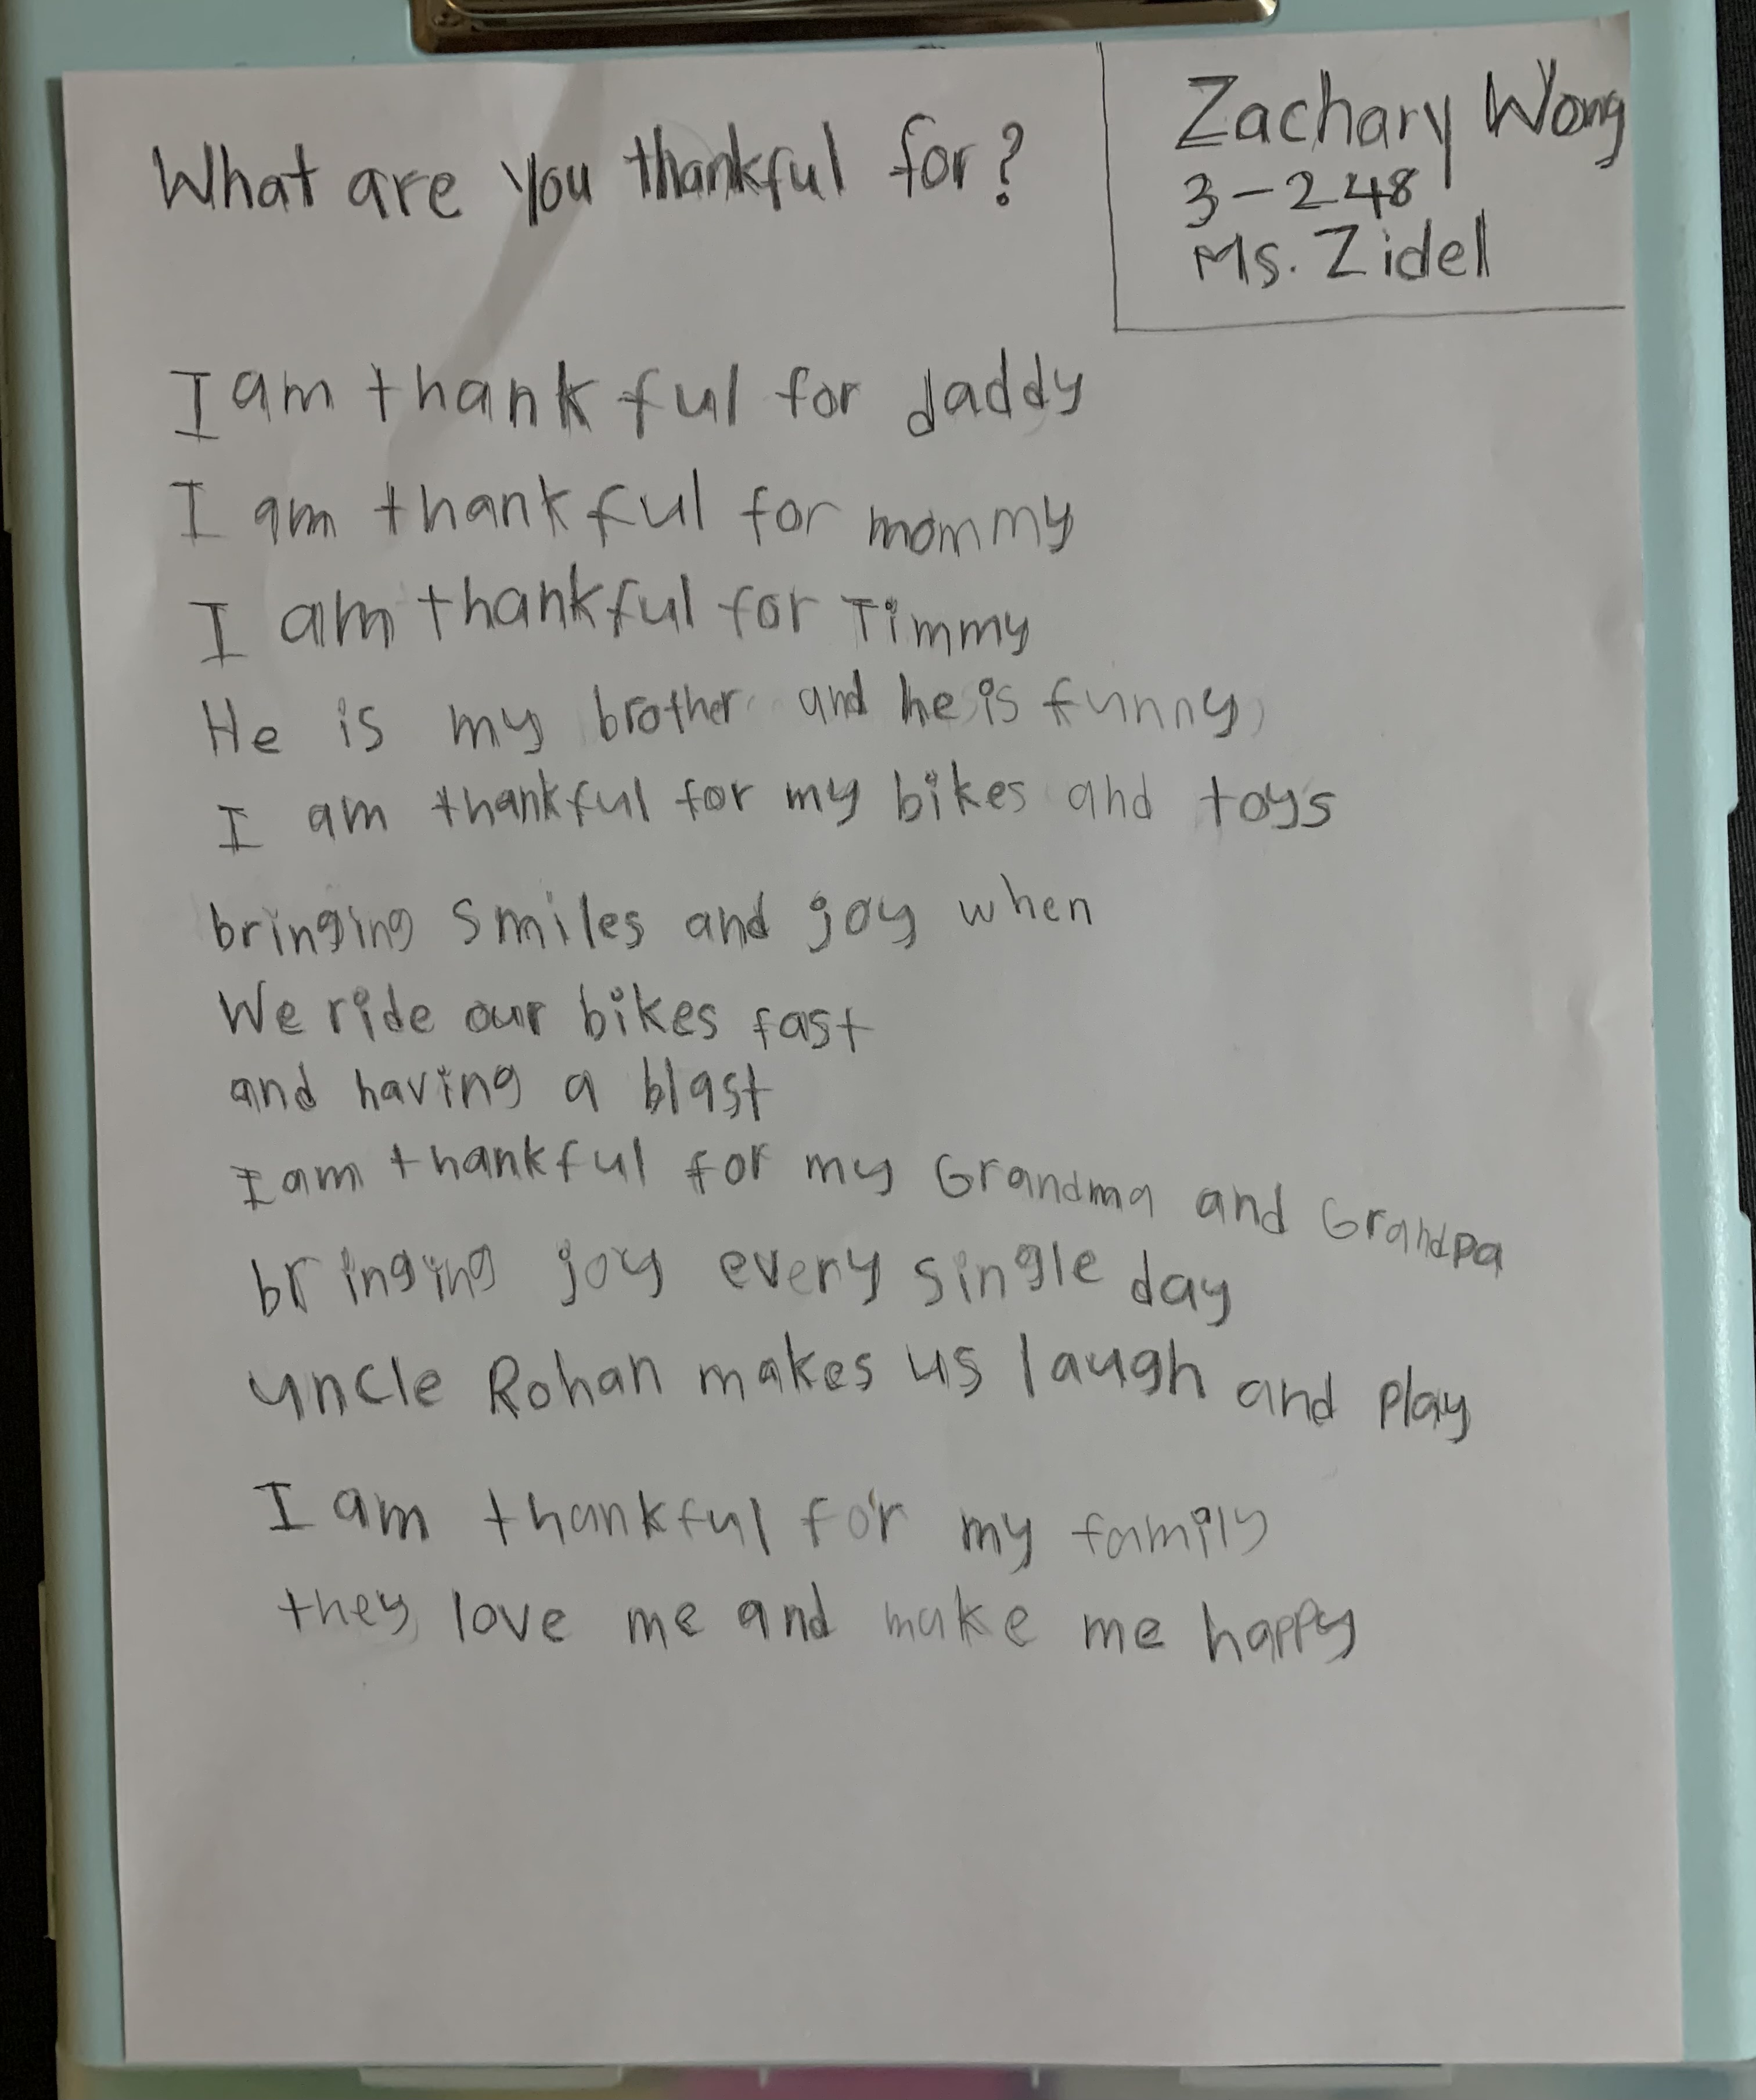 What are you thankful for?
Zachary Wong
3-248
Ms. Zidel
I am thankful for daddy
I am thankful for mommy
I am thankful for Timmy
He is my brother and he is funny
I am thankful for my bikes and toys
bringing smiles and joy when
We ride our bikes fast
and having a blast
I am thankful for my Grandma and Grandpa
bringing joy every single day
uncle Rohan makes us laugh and play
I am thankful for my family
they love me and make me happy